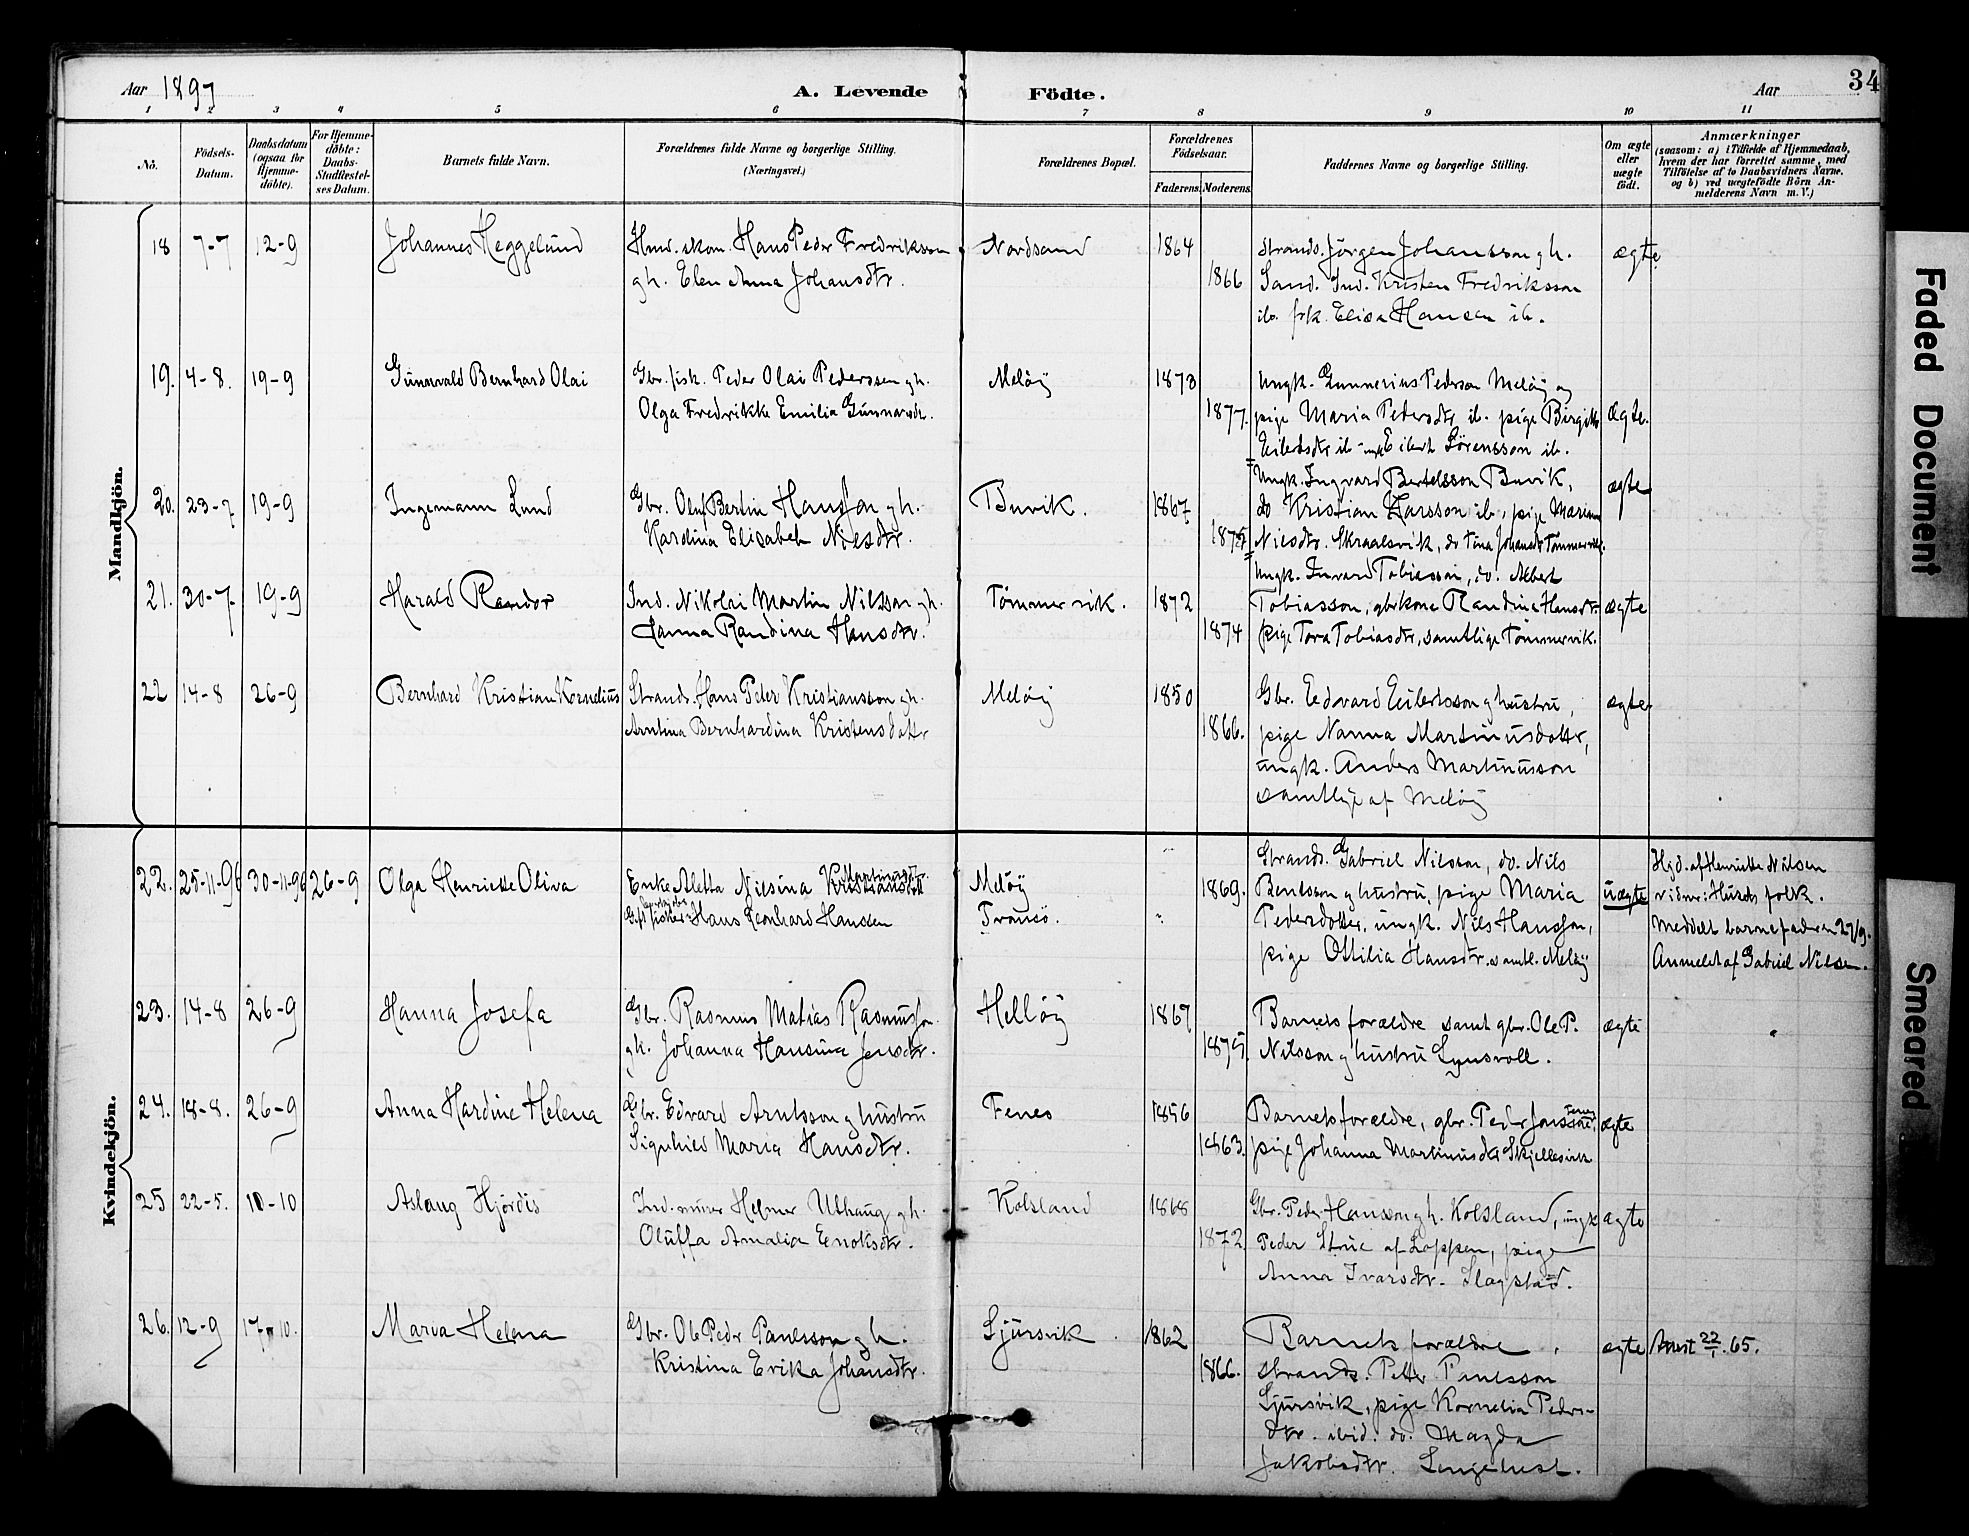 Aar 1897
A. Levende
Födte.
Aar
34
1 2 3 4 5 6 7 8 9 10 11
No.
Födsels-
Datum.
Daabsdatum
(ogsaa for
Hjemme-
döbte).
For Hjemme-
döbte:
Daabs-
Stadfæstel-
ses Datum.
Barnets fulde Navn.
Forældrenes fulde Navne og borgerlige Stilling.
(Næringsvei.)
Forældrenes Bopæl.
Forældrenes
Födselsaar.
Faderens.
Moderens.
Faddernes Navne og borgerlige Stilling.
Om ægte
eller
uægte
födt.
Anmærkninger
(saasom: a) i Tilfælde af Hjemmedaab,
hvem der har forrettet samme, med
Tilföielse af to Daabsvidners Navne.
og b) ved uægtefödte Börn An-
melderens Navn m. V.)
Mandkjön.
18 7-7 12-9
Johannes Heggelund
Hmd. skom. Hans Peder Fredriksson
gh. Elen Anna Johansdtr.
Nordsand
1864
1866
Strands. Jörgen Johansson gh.
Sand. Ind. Kristen Fredriksson
ib. frk. Elisa Hansen ib.
ægte
19. 4-8. 19-9
Gunnvald Bernhard Olai
Gbr. fisk. Peder Olai Pederssen gh.
Olga Fredrikke Emilia Gunnarsdtr.
Meløy
1873
1877.
Ungk. Gunnerius Pederson Meløy og
pige Maria Pedersdtr ib. pige Birgitte
Eilertsdtr ib - ungk Eilert Sörensson ib.
ægte.
20. 23-7 19-9
Ingemann Lund
Gbr. Oluf Bertin Hansson gh.
Kardina Elisabeh Nilsdtr.
Buvik.
1867
1875
Ungk. Ingvard Bertelsson Buvik,
do Kristian Larsson ib, pige Marina
Nilsdtr. Skraalsvik, do Tina Johansdtr Tømmervik.
ægte
21. 30-7. 19-9
Harald Randor
Ind. Nikolai Martin Nilsson gh.
Hanna Randina Hansdtr.
Tömmervik.
1872
1874
Ungk. Invard Tobiasson, do. Albert
Tobiasson, gbrkone Randina Hansdtr
pige Tora Tobiasdtr, samtlige Tömmervik.
ægte
22 14-8 26-9
Bernhard Kristian Kornelius
Strands. Hans Peter Kristiansson gh.
Arntina Bernhardina Kristensdattr
Meløy
1850
1866.
Gbr. Eedvard Eilertsson g hustru,
pige Nanna Martinusdattr,
ungk. Anders Martinusson
samtlige af Meløy
ægte
Kvindekjön.
22. 25-11-96 30-11-96 26-9
Olga Henriette Oliva
Enke Aletta Nilsina
Gift fisker Hans Leonhard Hanssen
Meløy
Tromsö.
1869.
Strands. Gabriel Nilsson, do. Nils
Bentsson g hustru, pige Maria
Pedersdatter, ungk. Nils Hansson,
pige Ottilia Hansdtr. samtl. Meløy
uægte
Hjd. af Henriette Nilsen
vidner: Husets folk.
Meddelt barnefaderen 27/9.
Anmeldt af Gabriel Nilsen.
23. 14-8 26-9
Hanna Josefa
Gbr. Rasmus Matias Rasmusson
gh. Johanna Hansina Jensdtr.
Helløy
1867
1875.
Barnets forældre samt gbr. Ole P.
Nilsson g hustru Lynsvoll.
ægte
24. 18-8. 26-9
Anna Hardine Helena
Gbr. Edvard Arntsson g hustru
Signhild Maria Hansdtr.
Fenes
1856
1863.
Barnets forældre, gbr. Peder Jonsson Fenes,
pige Johanna Martinusdtr Skjellesvik
ægte
25 22-5. 10-10
Aslaug Hjördis
Ind. minør Helmer Uthaug gh.
Oluffa Amalia Enoksdtr.
Kolsland
1868
1872
Gbr. Peder Hansson gh. Kolsland, ungk
Peder Struc af Loppen, pige
Anna Ivarsdtr. Slagstad.
ægte
26. 12-9 17-10.
Marva Helena
Gbr. Ol Pedr Paulsson gh.
Kristina Erika Johansdtr.
Sjursvik.
1862
1866.
Barnets forældre,
strands. Petter Paulsson
Sjursvik, pige Kornelia Peders-
dtr. ibid. do. Magda
Jakobsdtr.
ægte
22/1.65.
Faded Document
Smeared